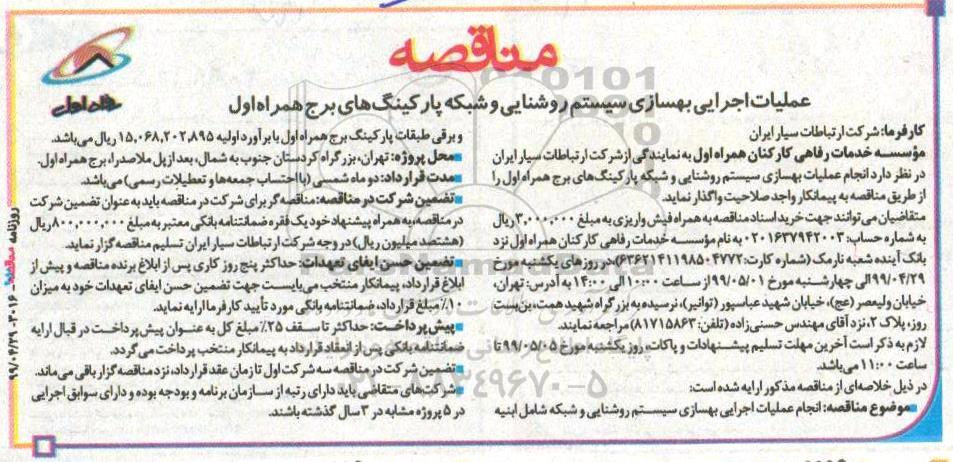 مناقصه
عملیات اجرایی بهسازی سیستم روشنایی و شبکه پارکینگ‌های برج همراه اول
همراه اول
کارفرما: شرکت ارتباطات سیار ایران
مؤسسه خدمات رفاهی کارکنان همراه اول به نمایندگی از شرکت ارتباطات سیار ایران
در نظر دارد انجام عملیات بهسازی سیستم روشنایی و شبکه پارکینگ‌های برج همراه اول را
از طریق مناقصه به پیمانکار واجد صلاحیت واگذار نماید.
متقاضیان می‌توانند جهت خرید اسناد مناقصه به همراه فیش واریزی به مبلغ ۳,۰۰۰,۰۰۰ ریال
به شماره حساب: ۰۲۰۱۶۳۷۹۴۲۰۰۳ به نام مؤسسه خدمات رفاهی کارکنان همراه اول نزد
بانک آینده شعبه نارمک (شماره کارت: ۶۳۶۲۱۴۱۱۹۸۵۰۴۷۷۲) در روزهای یکشنبه مورخ
۹۹/۰۴/۲۹ الی چهارشنبه مورخ ۹۹/۰۵/۰۱ از ساعت ۱۰:۰۰ الی ۱۴:۰۰ به آدرس: تهران،
خیابان ولیعصر (عج)، خیابان شهید عباسپور (توانیر)، نرسیده به بزرگراه شهید همت، بن‌بست
روز، پلاک ۲، نزد آقای مهندس حسنی‌زاده (تلفن: ۸۱۷۱۵۸۶۳) مراجعه نمایند.
لازم به ذکر است آخرین مهلت تسلیم پیشنهادات و پاکات، روز یکشنبه مورخ ۹۹/۰۵/۰۵ تا
ساعت ۱۱:۰۰ می‌باشد.
در ذیل خلاصه‌ای از مناقصه مذکور ارایه شده است:
موضوع مناقصه: انجام عملیات اجرایی بهسازی سیستم روشنایی و شبکه شامل ابنیه
و برقی طبقات پارکینگ برج همراه اول با برآورد اولیه ۱۵,۰۶۸,۲۰۲,۸۹۵ ریال می‌باشد.
محل پروژه: تهران، بزرگراه کردستان جنوب به شمال، بعد از پل ملاصدرا، برج همراه اول.
مدت قرارداد: دو ماه شمسی (با احتساب جمعه‌ها و تعطیلات رسمی) می‌باشد.
تضمین شرکت در مناقصه: مناقصه‌گر برای شرکت در مناقصه باید به عنوان تضمین شرکت
در مناقصه، به همراه پیشنهاد خود یک فقره ضمانتنامه بانکی معتبر به مبلغ ۸۰۰,۰۰۰,۰۰۰ ریال
(هشتصد میلیون ریال) در وجه شرکت ارتباطات سیار ایران تسلیم مناقصه‌گزار نماید.
تضمین حسن ایفای تعهدات: حداکثر پنج روز کاری پس از ابلاغ برنده مناقصه و پیش از
ابلاغ قرارداد، پیمانکار منتخب می‌بایست جهت تضمین حسن ایفای تعهدات خود به میزان
۱۰٪ مبلغ قرارداد، ضمانتنامه بانکی مورد تأیید کارفرما ارایه نماید.
پیش‌پرداخت: حداکثر تا سقف ۲۵٪ مبلغ کل به عنوان پیش‌پرداخت در قبال ارایه
ضمانتنامه بانکی پس از انعقاد قرارداد به پیمانکار منتخب پرداخت می‌گردد.
تضمین شرکت در مناقصه سه شرکت اول تا زمان عقد قرارداد، نزد مناقصه‌گزار باقی می‌ماند.
شرکت‌های متقاضی باید دارای رتبه از سازمان برنامه و بودجه بوده و دارای سوابق اجرایی
در ۵ پروژه مشابه در ۳ سال گذشته باشند.
روزنامه مناقصه ۳۰۱۶ - ۹۹/۰۴/۲۹
۰۲۱-۸۸۳۴۹۶۷۰-۵